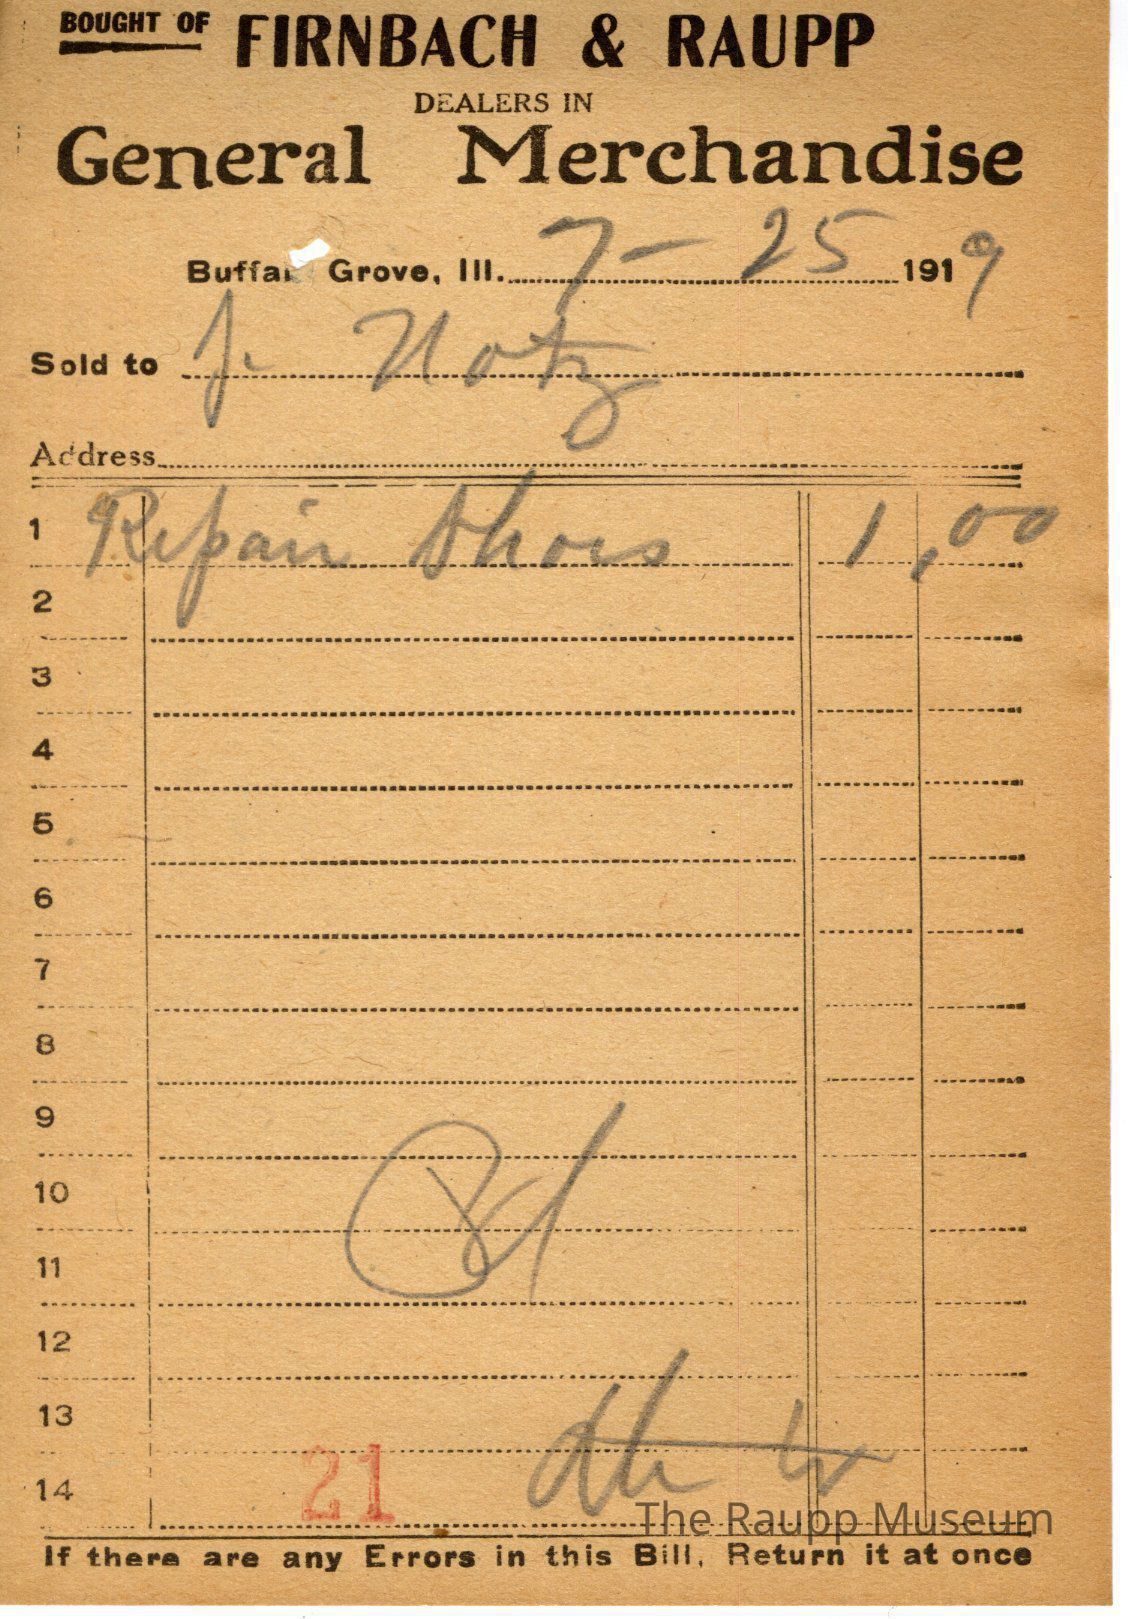 BOUGHT OF FIRNBACH & RAUPP
DEALERS IN
General Merchandise
Buffalo Grove, Ill. 7-25 1919
Sold to J. Notz
Address
1 Repair Shoes 1,00
2
3
4
5
6
7
8
9
10
11
12
13
14 21
The Raupp Museum
If there are any Errors in this Bill, Return it at once